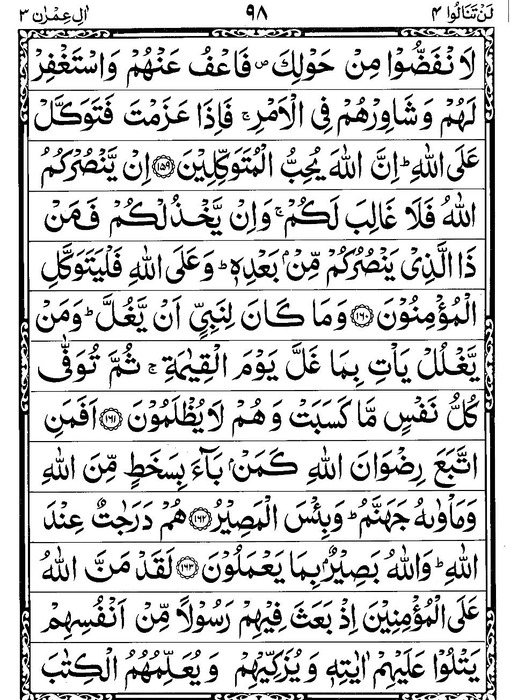 لَنْ تَنَالُوا ۴ ۹۸ اٰلِ عِمْرٰن ۳
لَا نْفَضُّوْا مِنْ حَوْلِكَ ۪ فَاعْفُ عَنْهُمْ وَاسْتَغْفِرْ
لَهُمْ وَشَاوِرْهُمْ فِى الْاَمْرِ ۚ فَاِذَا عَزَمْتَ فَتَوَكَّلْ
عَلَى اللّٰهِ ؕ اِنَّ اللّٰهَ يُحِبُّ الْمُتَوَكِّلِيْنَ ﴿۱۵۹﴾ اِنْ يَّنْصُرْكُمُ
اللّٰهُ فَلَا غَالِبَ لَكُمْ ۚ وَاِنْ يَّخْذُلْكُمْ فَمَنْ
ذَا الَّذِىْ يَنْصُرُكُمْ مِّنْۢ بَعْدِهٖ ؕ وَعَلَى اللّٰهِ فَلْيَتَوَكَّلِ
الْمُؤْمِنُوْنَ ﴿۱۶۰﴾ وَمَا كَانَ لِنَبِىٍّ اَنْ يَّغُلَّ ؕ وَمَنْ
يَّغْلُلْ يَاْتِ بِمَا غَلَّ يَوْمَ الْقِيٰمَةِ ۚ ثُمَّ تُوَفّٰى
كُلُّ نَفْسٍ مَّا كَسَبَتْ وَهُمْ لَا يُظْلَمُوْنَ ﴿۱۶۱﴾ اَفَمَنِ
اتَّبَعَ رِضْوَانَ اللّٰهِ كَمَنْۢ بَآءَ بِسَخَطٍ مِّنَ اللّٰهِ
وَمَاْوٰىهُ جَهَنَّمُ ؕ وَبِئْسَ الْمَصِيْرُ ﴿۱۶۲﴾ هُمْ دَرَجٰتٌ عِنْدَ
اللّٰهِ ؕ وَاللّٰهُ بَصِيْرٌۢ بِمَا يَعْمَلُوْنَ ﴿۱۶۳﴾ لَقَدْ مَنَّ اللّٰهُ
عَلَى الْمُؤْمِنِيْنَ اِذْ بَعَثَ فِيْهِمْ رَسُوْلًا مِّنْ اَنْفُسِهِمْ
يَتْلُوْا عَلَيْهِمْ اٰيٰتِهٖ وَيُزَكِّيْهِمْ وَيُعَلِّمُهُمُ الْكِتٰبَ